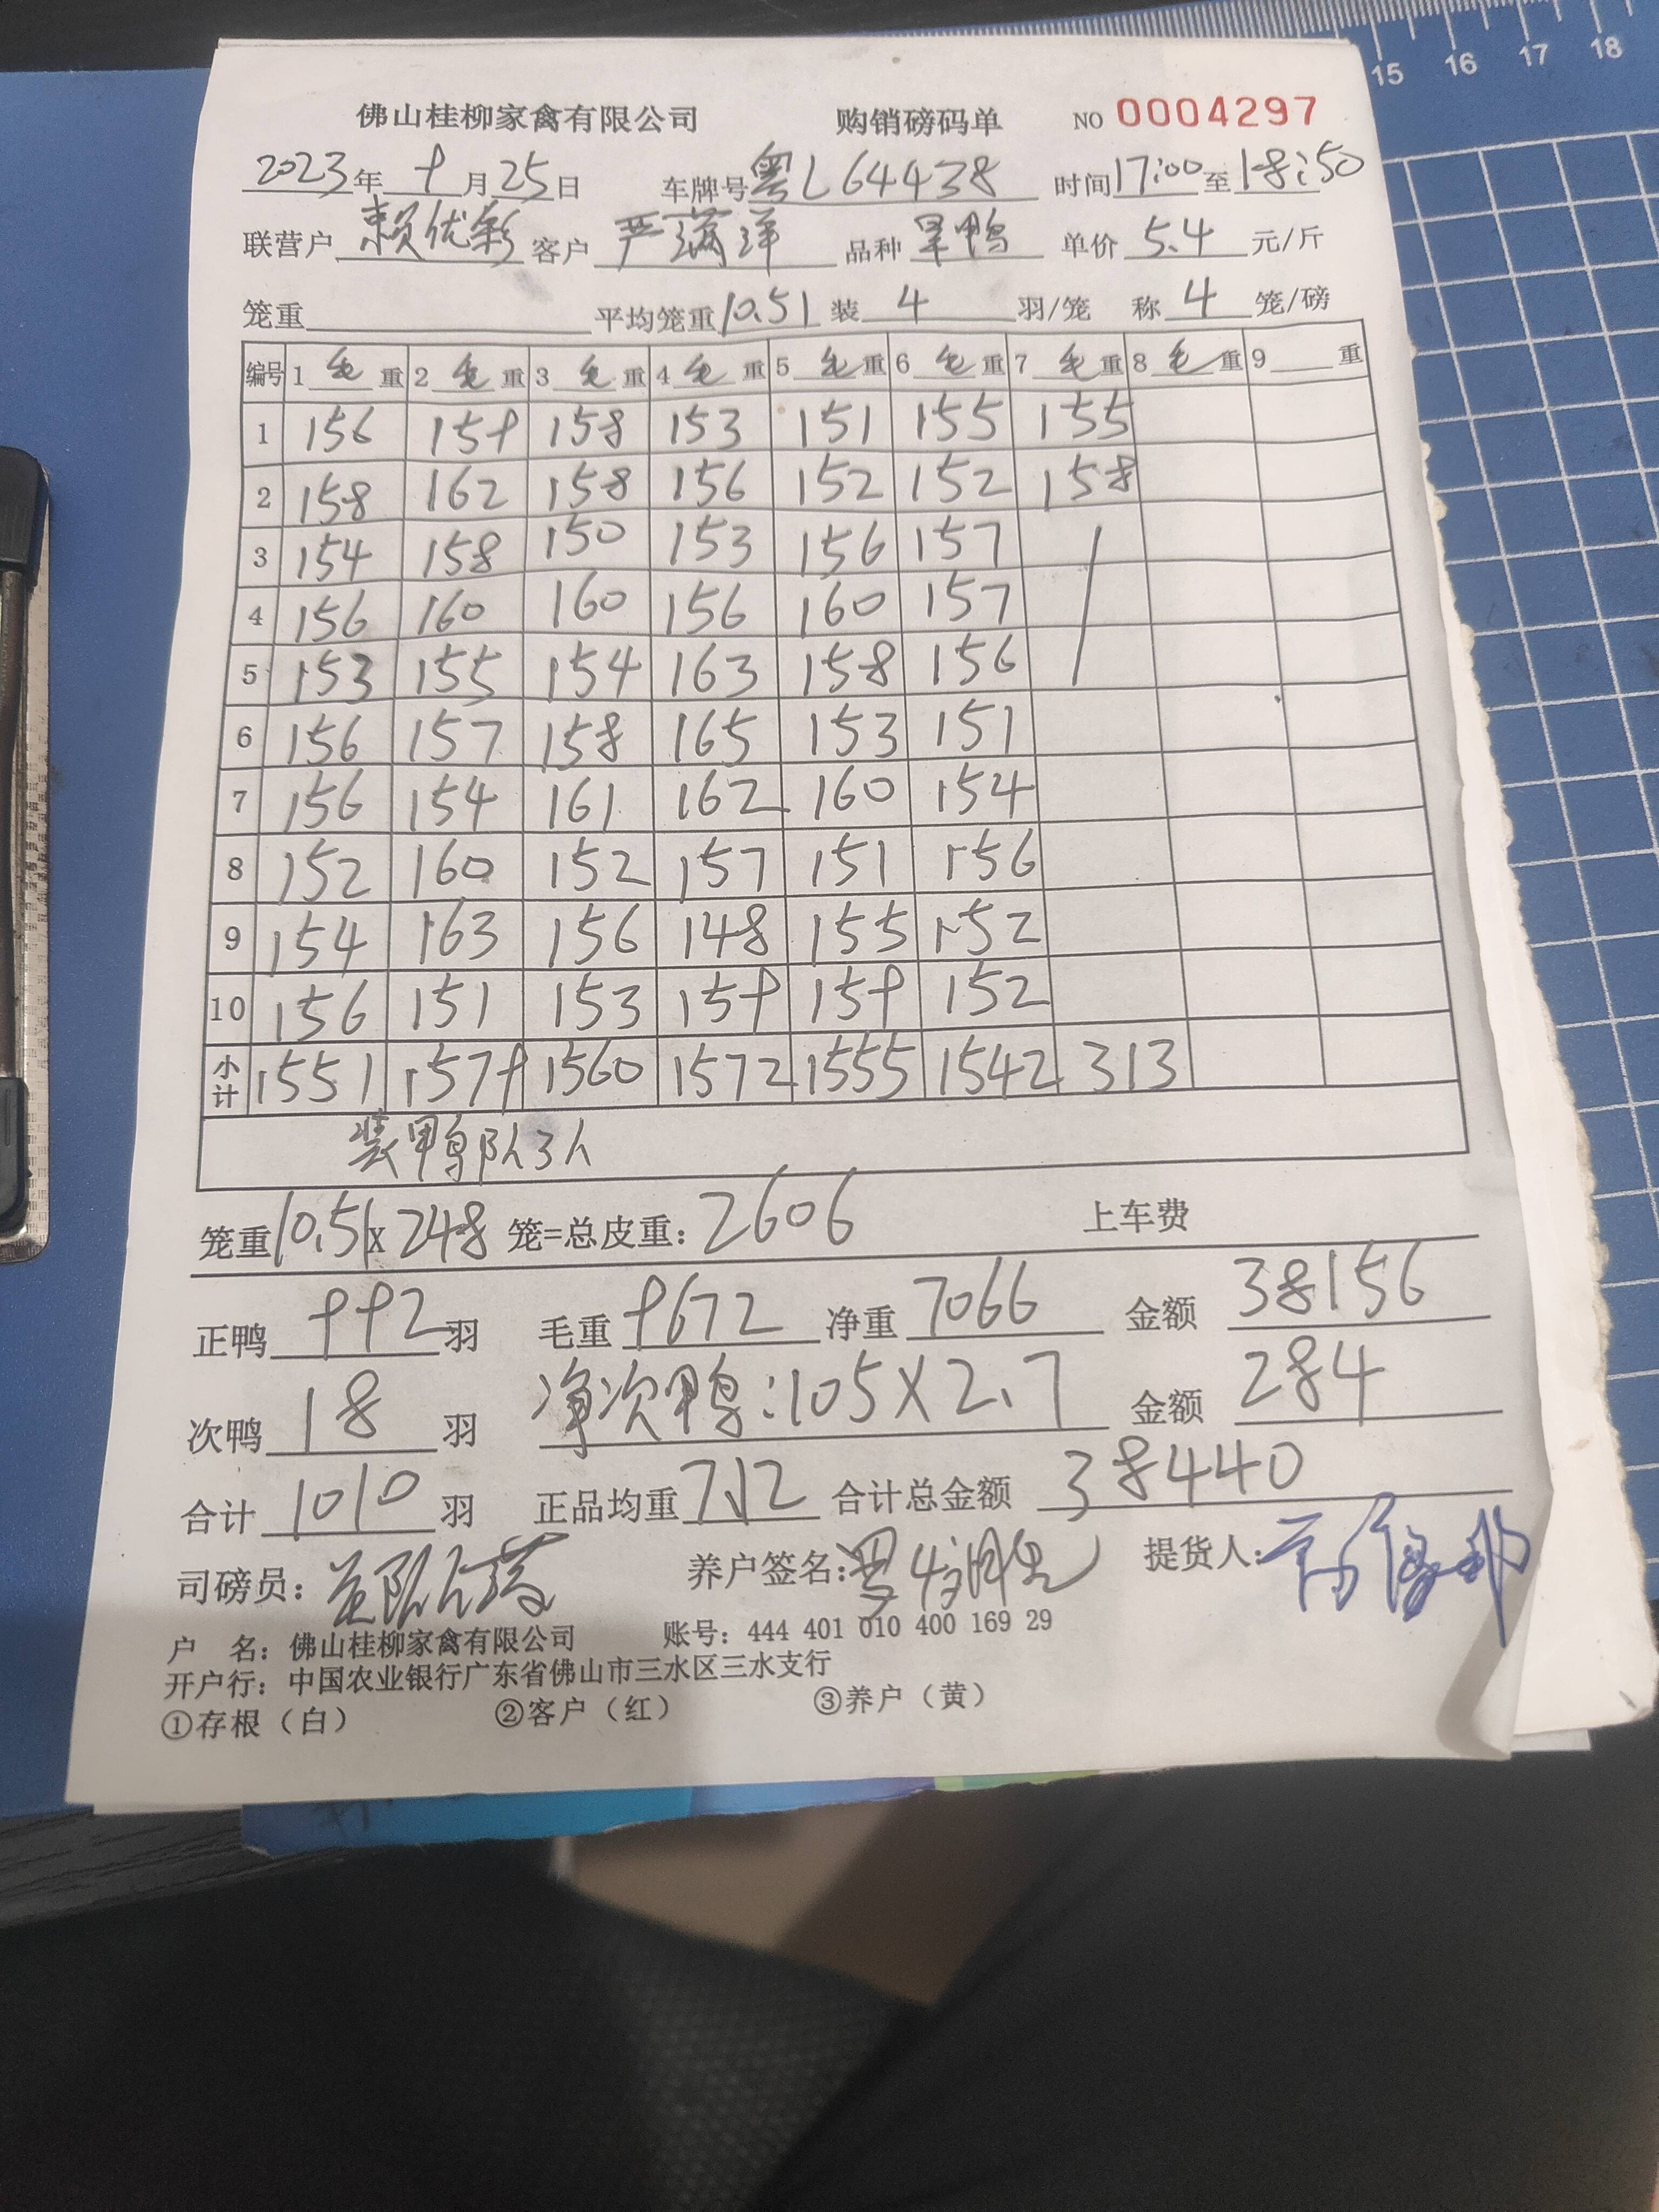 15 16 17 18
佛山桂柳家禽有限公司 购销磅码单 NO 0004297
2023年 9月25日 车牌号粤L64438 时间17:00至18:50
联营户 赖优彩 客户 严满洋 品种 旱鸭 单价 5.4 元/斤
笼重 平均笼重10.51 装 4 羽/笼 称 4 笼/磅
编号 1 毛 重 2 毛 重 3 毛 重 4 毛 重 5 毛 重 6 毛 重 7 毛 重 8 毛 重 9 重
1 156 159 158 153 151 155 155
2 158 162 158 156 152 152 158
3 154 158 150 153 156 157
4 156 160 160 156 160 157
5 153 155 154 163 158 156
6 156 157 158 165 153 151
7 156 154 161 162 160 154
8 152 160 152 157 151 156
9 154 163 156 148 155 152
10 156 151 153 159 159 152
小计 1551 1579 1560 1572 1555 1542 313
装鸭队3人
笼重10.51x248 笼=总皮重: 2606 上车费
正鸭 992 羽 毛重 9672 净重 7066 金额 38156
次鸭 18 羽 净次鸭:105X2.7 金额 284
合计 1010 羽 正品均重 7.12 合计总金额 38440
司磅员: 养户签名: 提货人:
户 名: 佛山桂柳家禽有限公司 账号: 444 401 010 400 169 29
开户行: 中国农业银行广东省佛山市三水区三水支行
①存根（白） ②客户（红） ③养户（黄）